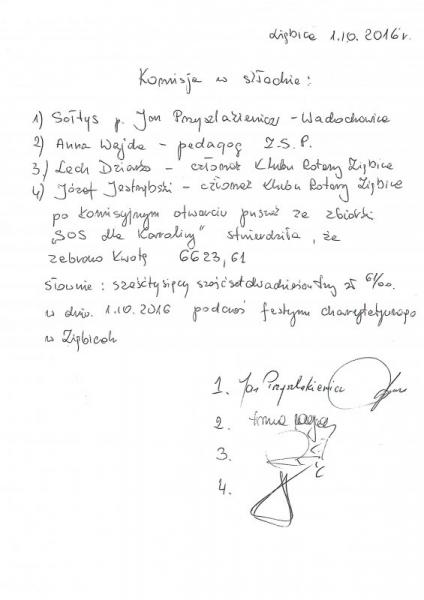 Ziębice 1.10.2016r.
Komisja w składzie:
1) Sołtys p. Jan - Wadochowice
2) Anna Wajda - pedagog Z.S.P.
3) Lech - członek Klubu Rotary Ziębice
4) Józef Jastrzębski - członek Klubu Rotary Ziębice
po komisyjnym otwarciu puszek ze zbiórki
„SOS dla Karoliny" stwierdziła, że
zebrano kwotę 6623,61
słownie: sześć tysięcy sześćset dwadzieścia trzy zł 61/00.
w dniu 1.10.2016 podczas festynu charytatywnego
w Ziębicach
1. Jan
2. Anna
3.
4.